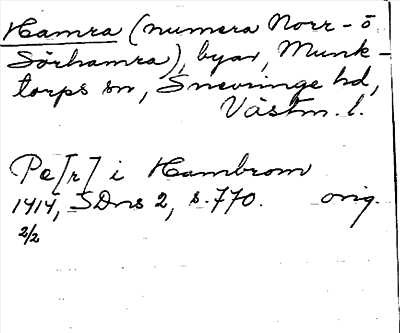 Hamra (numera Norr- o
Sörhamra), byar, Munk-
torps sn, Snevringe hd,
Västm. l.
Pe[r] i Hambrom
1414, SDns 2, s. 770. orig.
2/2